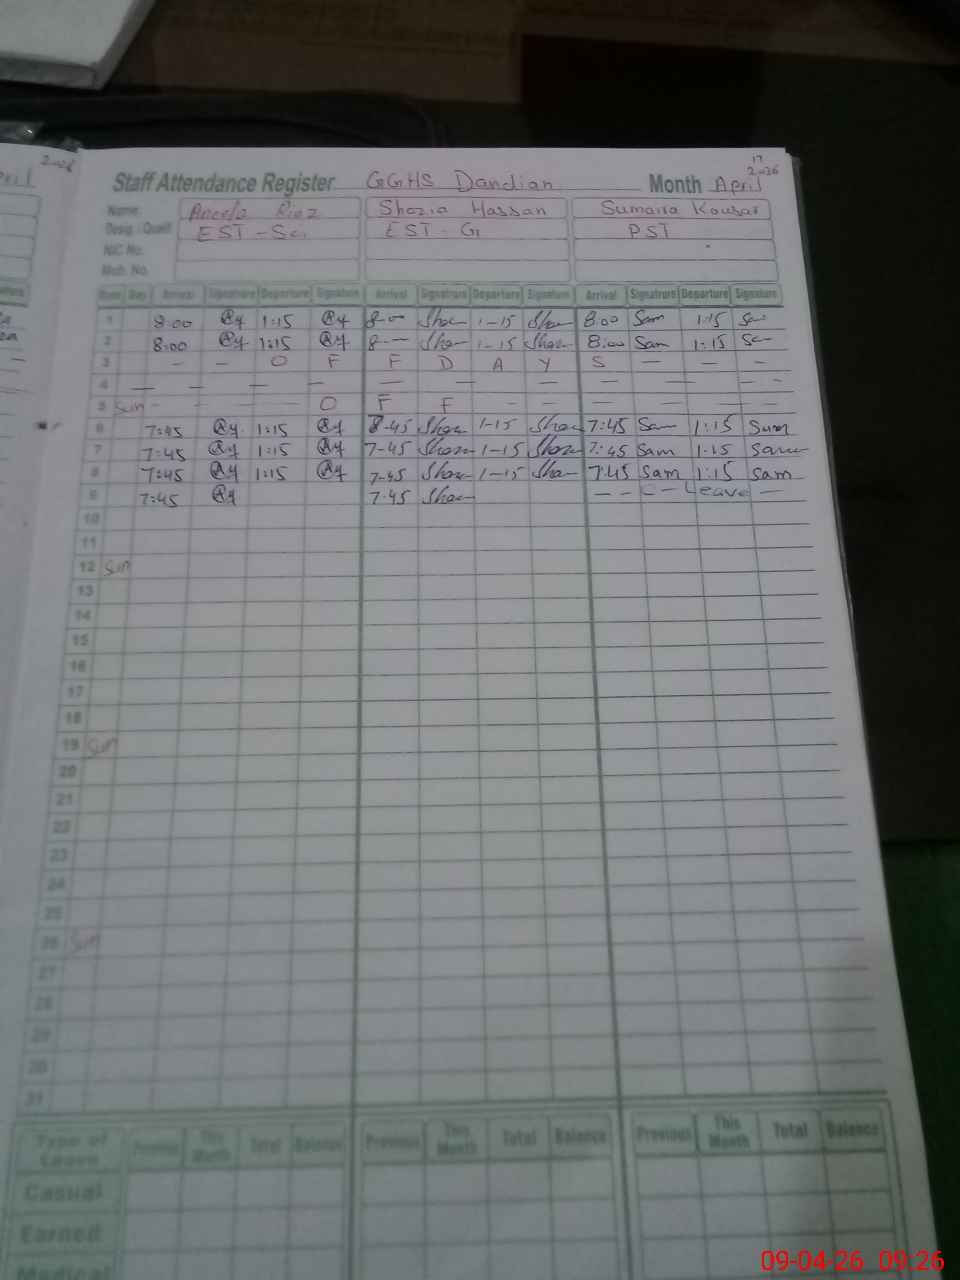 2026
April
17
2026
Staff Attendance Register GGHS Dandian Month April
Name. Aneela Riaz Shazia Hassan Sumaira Kousar
Desig / Qualif. EST-Sci EST-G PST
NIC No.
Mob. No.
Date Day Arrival Signatrure Departure Signature Arrival Signatrure Departure Signature Arrival Signatrure Departure Signature
1 8:00 1:15 8-00 Shaz 1-15 Shaz 8:00 Sam 1:15
2 8:00 1:15 8- Shaz 1-15 Shaz 8:00 Sam 1:15
3 - - O F F D A Y S - - -
4 — — — — — — — — — - -
5 Sun - - - O F F - - - - - -
6 7:45 1:15 8-45 Shaz 1-15 Shaz 7:45 Sam 1:15 Sam
7 7:45 1:15 7-45 Shaz 1-15 Shaz 7:45 Sam 1:15 Sam
8 7:45 1:15 7-45 Shaz 1-15 Shaz 7:45 Sam 1:15 Sam
9 7:45 7-45 Shaz - - C - Leave -
10
11
12 Sun
13
14
15
16
17
18
19 Sun
20
21
22
23
24
25
26 Sun
27
28
29
30
31
Type of Leave Previous This Month Total Balance Previous This Month Total Balance Previous This Month Total Balance
Casual
Earned
Medical
09-04-26 09:26